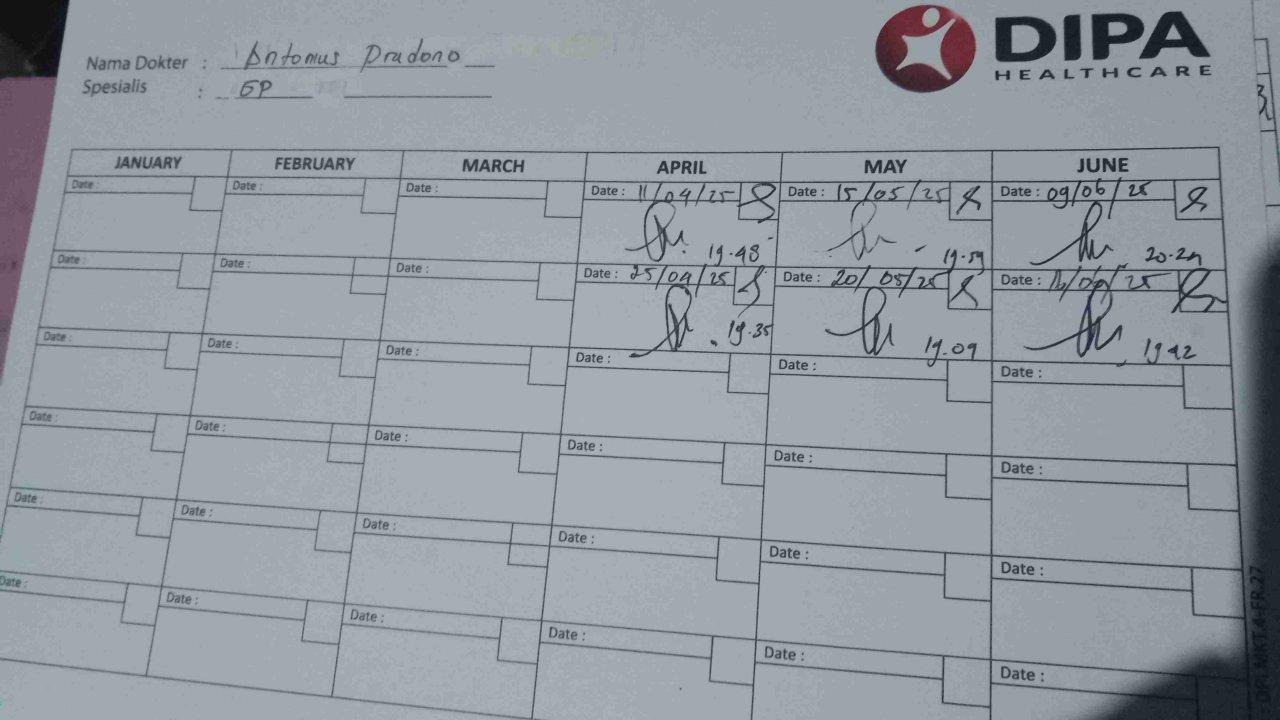 DIPA
HEALTHCARE
Nama Dokter : Antonius Pradono
Spesialis : GP
JANUARY FEBRUARY MARCH APRIL MAY JUNE
Date : Date : Date : Date : 11/04/25 Date : 15/05/25 Date : 09/06/25
19.48 19.59
Date : Date : Date : Date : 25/04/25 Date : 20/05/25 Date :
19.35 19.09 1942
Date : Date : Date : Date : Date : Date :
Date : Date : Date : Date : Date : Date :
Date : Date : Date : Date : Date : Date :
Date : Date : Date : Date : Date : Date :